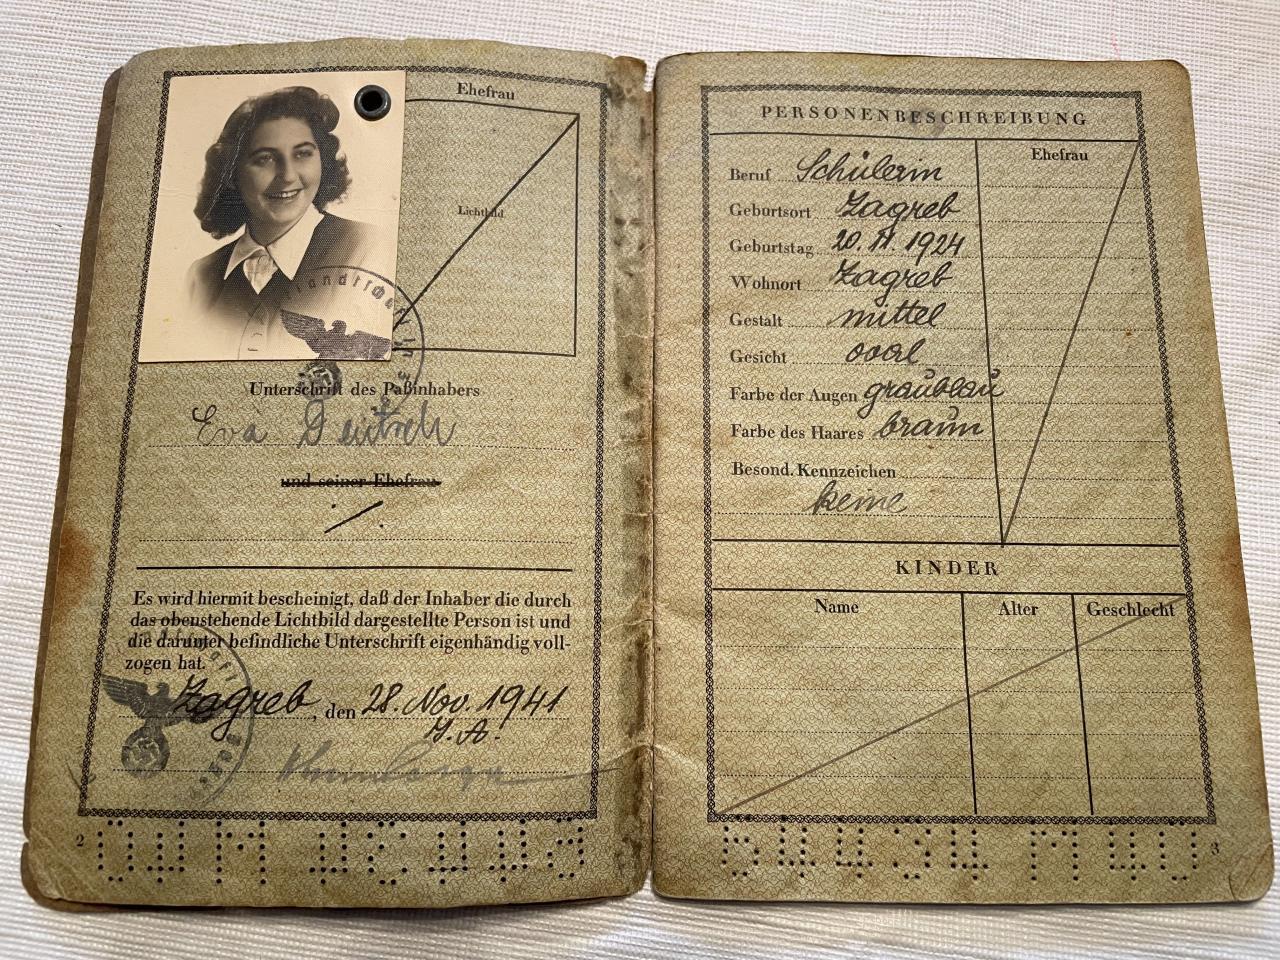 Ehefrau
Lichtbild
Unterschrift des Paßinhabers
Eva Deutsch
und seiner Ehefrau
Es wird hiermit bescheinigt, daß der Inhaber die durch
das obenstehende Lichtbild dargestellte Person ist und
die darunter befindliche Unterschrift eigenhändig voll-
zogen hat.
Zagreb, den 28. Nov. 1941
I.A.
2
PERSONENBESCHREIBUNG
Ehefrau
Beruf Schülerin
Geburtsort Zagreb
Geburtstag 20.11.1924
Wohnort Zagreb
Gestalt mittel
Gesicht oval
Farbe der Augen graublau
Farbe des Haares braun
Besond. Kennzeichen
keine
KINDER
Name Alter Geschlecht
3